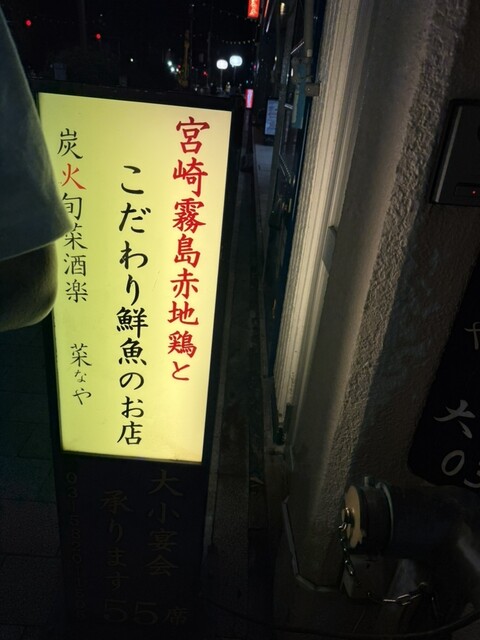 宮崎霧島赤地鶏と
こだわり鮮魚のお店
炭火旬菜酒楽
菜なや
大小宴会
承ります
55席